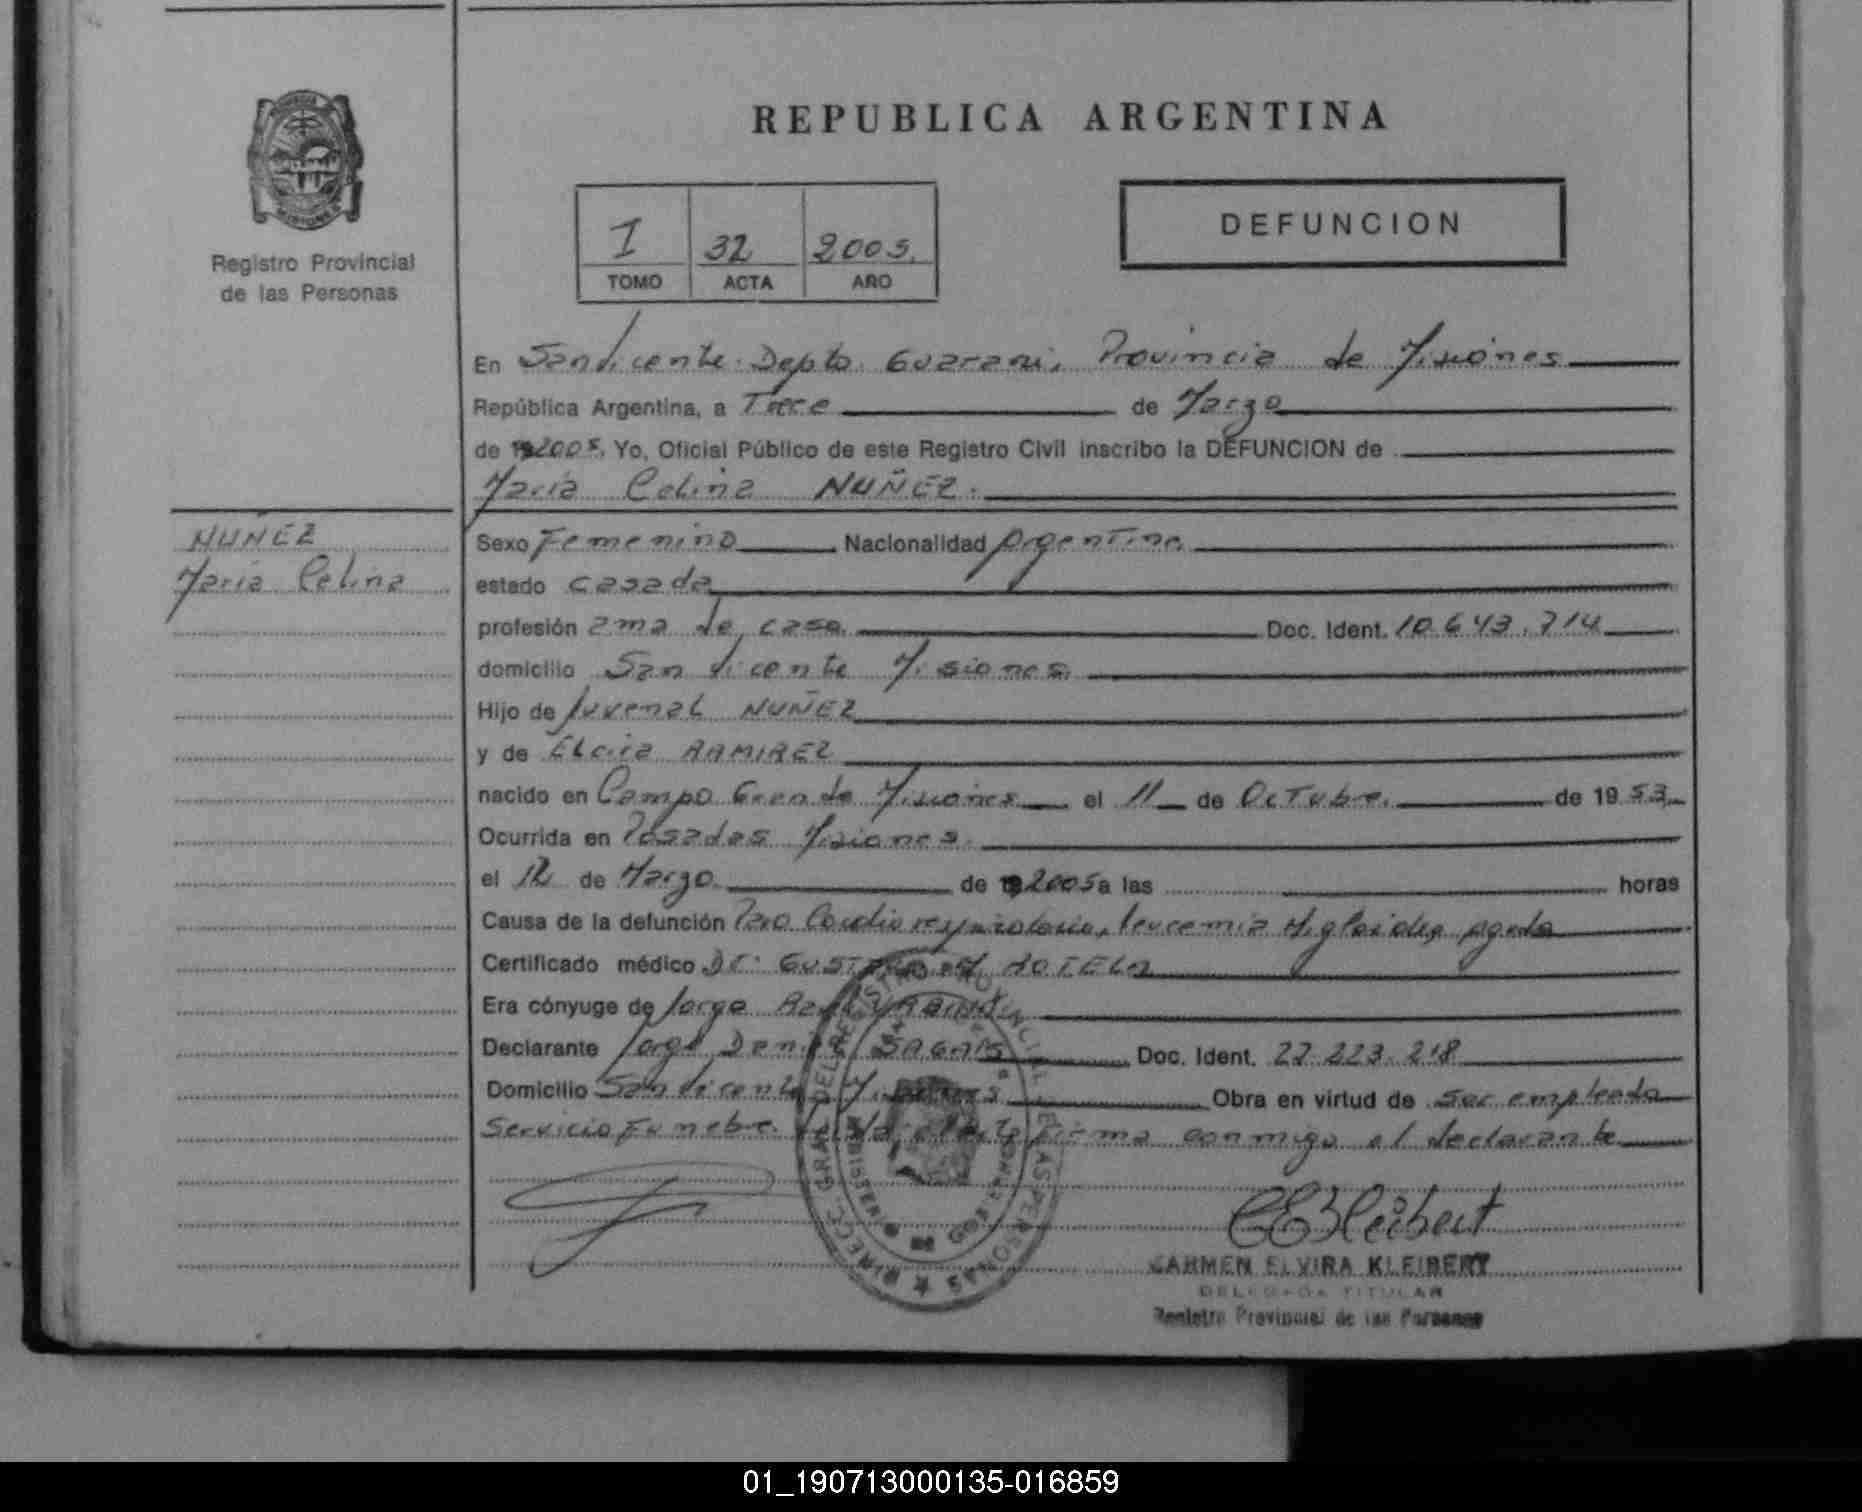 REPUBLICA ARGENTINA
Registro Provincial
de las Personas
I 32 2005.
TOMO ACTA AÑO
DEFUNCION
En San Vicente Depto. Guarani, Provincia de Misiones
República Argentina, a Trece de Marzo
de 2005. Yo, Oficial Público de este Registro Civil inscribo la DEFUNCION de
Maria Celina NUÑEZ.
NUÑEZ
Maria Celina
Sexo Femenino Nacionalidad Argentina
estado casada
profesión ama de casa Doc. Ident. 10.643.714
domicilio San Vicente Misiones
Hijo de Juvenal NUÑEZ
y de Elcira RAMIREZ
nacido en Campo Grande Misiones el 11 de Octubre de 1953
Ocurrida en Posadas Misiones
el 12 de Marzo de 2005 a las horas
Causa de la defunción Paro Cardio respiratorio, leucemia aguda
Certificado médico Dr. GUSTAVO
Era cónyuge de Jorge
Declarante Jorge Doc. Ident. 22.223.218
Domicilio San Vicente Misiones Obra en virtud de ser empleado
Servicio Funebre. firma conmigo el declarante
CEKleibert
CARMEN ELVIRA KLEIBERT
DELEGADA TITULAR
Registro Provincial de las Personas
DIRECC. GRAL. DEL REGISTRO PROVINCIAL DE LAS PERSONAS
01_190713000135-016859